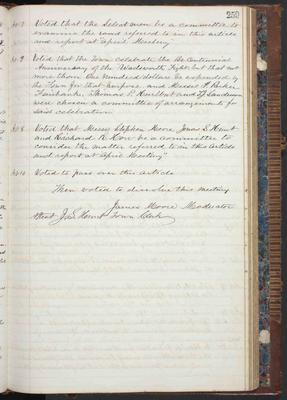 259
Voted that the Selectmen be a committee to
examine the road referred to in this article
and report at April Meeting.
Voted that the Town celebrate the Bi-Centennial
Anniversary of the Wadsworth Fight, but that not
more than One Hundred dollars be expended by
the Town for that purpose, and Messrs
Fairbank, Thomas P. Hurlbut and
were chosen a committee of arrangements for
said celebration
No 8 Voted that Messrs Stephen Moore, Jonas S. Hunt
and Richard R. How be a committee to
consider the matter referred to in this article
and report at April Meeting"
Voted to pass over this article
Then voted to dissolve this meeting
James Moore Moderator
Attest J. S. Hunt Town Clerk